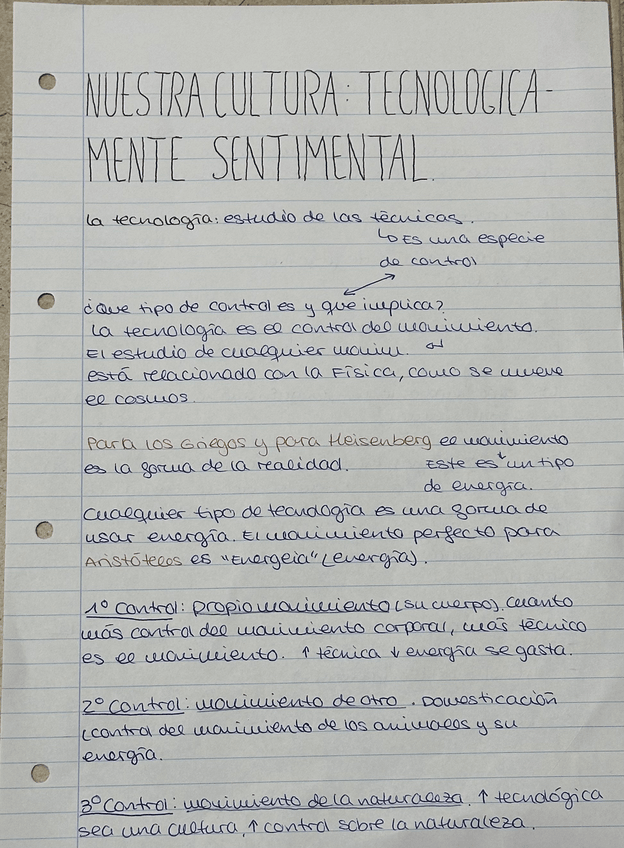 NUESTRA CULTURA: TECNOLOGICA-
MENTE SENTIMENTAL.
La tecnología: estudio de las técnicas.
↳ Es una especie
de control
¿Que tipo de control es y que implica?
La tecnología es el control del movimiento.
El estudio de cualquier movim. ↵
está relacionado con la Física, como se mueve
el cosmos.
Para los Griegos y para Heisenberg el movimiento
es la forma de la realidad. Este es un tipo
de energía.
Cualquier tipo de tecnología es una forma de
usar energía. El movimiento perfecto para
Aristóteles es "Energeia" (energía).
1º Control: propio movimiento (su cuerpo). Cuanto
más control del movimiento corporal, más técnico
es el movimiento. ↑ técnica ↓ energía se gasta.
2º Control: movimiento de otro. Domesticación
(control del movimiento de los animales y su
energía.
3º Control: movimiento de la naturaleza. ↑ tecnológica
sea una cultura, ↑ control sobre la naturaleza.